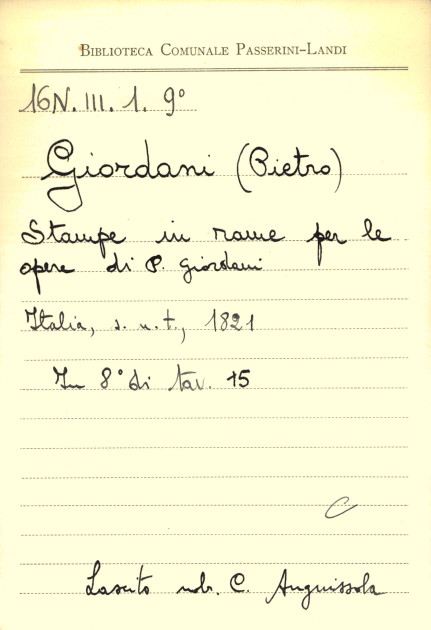 BIBLIOTECA COMUNALE PASSERINI-LANDI
16N. III. 1. 9°
Giordani (Pietro)
Stampe in rame per le
opere di P. Giordani
Italia, s. n. t., 1821
In 8° di tav. 15
C
Lascito nob. C. Anguissola